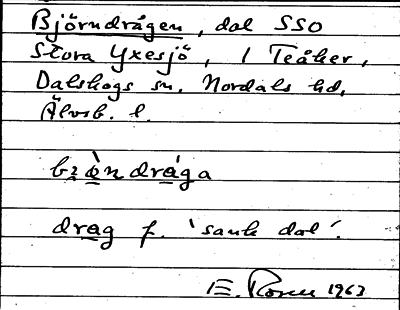 Björndrågen, dal SSO
Stora Yxesjö, 1 Teåker,
Dalskogs sn. Nordals hd,
Älvsb. l.
bɜ̀ndråga
drag f. 'sank dal'.
E. Rosen 1963